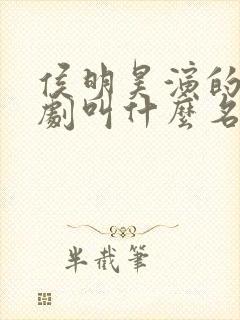 侯明昊演的
劇叫什麼名
半截筆